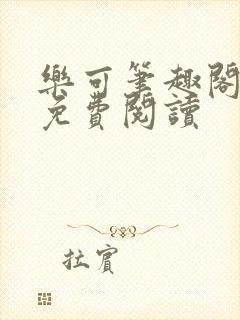 樂可筆趣閣
免費閱讀
拉賓